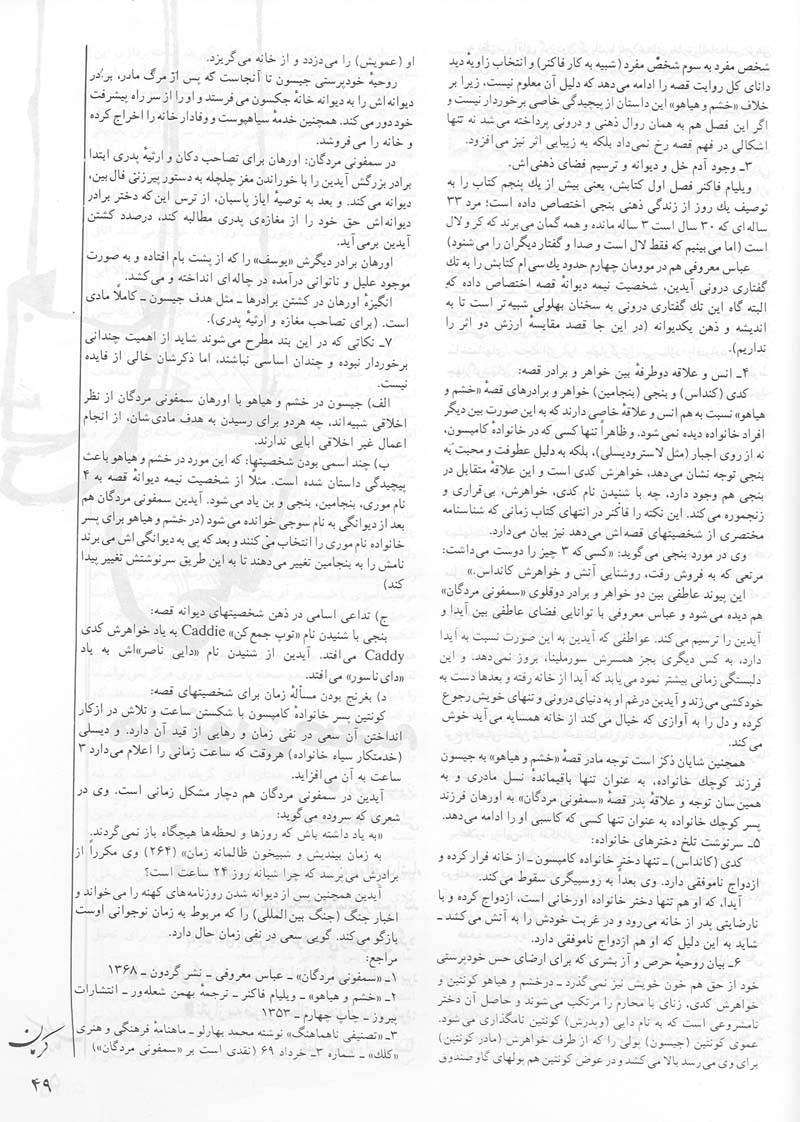 شخص مفرد به سوم شخص مفرد (شبیه به کار فاکنر) و انتخاب زاویهٔ دید
دانای کل روایت قصه را ادامه می‌دهد که دلیل آن معلوم نیست، زیرا بر
خلاف «خشم و هیاهو» این داستان از پیچیدگی خاصی برخوردار نیست و
اگر این فصل هم به همان روال ذهنی و درونی پرداخته می‌شد نه تنها
اشکالی در فهم قصه رخ نمی‌داد بلکه به زیبایی اثر نیز می‌افزود.
۳ـ وجود آدم خل و دیوانه و ترسیم فضای ذهنی‌اش.
ویلیام فاکنر فصل اول کتابش، یعنی بیش از یك پنجم کتاب را به
توصیف یك روز از زندگی ذهنی بنجی اختصاص داده است؛ مرد ۳۳
ساله‌ای که ۳۰ سال است ۳ ساله مانده و همه گمان می‌برند که کر و لال
است (اما می‌بینیم که فقط لال است و صدا و گفتار دیگران را می‌شنود)
عباس معروفی هم در موومان چهارم حدود یك سی‌ام کتابش را به تك
گفتاری درونی آیدین، شخصیت نیمه دیوانهٔ قصه اختصاص داده که
البته گاه این تك گفتاری درونی به سخنان بهلولی شبیه‌تر است تا به
اندیشه و ذهن یکدیوانه (در این جا قصد مقایسهٔ ارزش دو اثر را
نداریم).
۴ـ انس و علاقه دوطرفهٔ بین خواهر و برادر قصه:
کدی (کنداس) و بنجی (بنجامین) خواهر و برادرهای قصهٔ «خشم و
هیاهو» نسبت به هم انس و علاقهٔ خاصی دارند که به این صورت بین دیگر
افراد خانواده دیده نمی‌شود. و ظاهراً تنها کسی که در خانوادهٔ کامپسون،
نه از روی اجبار (مثل لاستر ودیسلی)، بلکه به دلیل عطوفت و محبت به
بنجی توجه نشان می‌دهد، خواهرش کدی است و این علاقهٔ متقابل در
بنجی هم وجود دارد، چه با شنیدن نام کدی، خواهرش، بی‌قراری و
زنجموره می‌کند. این نکته را فاکنر در انتهای کتاب زمانی که شناسنامه
مختصری از شخصیتهای قصه‌اش می‌دهد نیز بیان می‌دارد.
وی در مورد بنجی می‌گوید: «کسی که ۳ چیز را دوست می‌داشت:
مرتعی که به فروش رفت، روشنایی آتش و خواهرش کانداس.»
این پیوند عاطفی بین دو خواهر و برادر دوقلوی «سمفونی مردگان»
هم دیده می‌شود و عباس معروفی با توانایی فضای عاطفی بین آیدا و
آیدین را ترسیم می‌کند. عواطفی که آیدین به این صورت نسبت به آیدا
دارد، به کس دیگری بجز همسرش سورملینا، بروز نمی‌دهد. و این
دلبستگی زمانی بیشتر نمود می‌یابد که آیدا از خانه رفته و بعدها دست به
خودکشی می‌زند و آیدین درغم او به دنیای درونی و تنهای خویش رجوع
کرده و دل را به آوازی که خیال می‌کند از خانه همسایه می‌آید خوش
می‌کند.
همچنین شایان ذکر است توجه مادر قصهٔ «خشم و هیاهو» به جیسون
فرزند کوچك خانواده، به عنوان تنها باقیماندهٔ نسل مادری و به
همین‌سان توجه و علاقهٔ پدر قصهٔ «سمفونی مردگان» به اورهان فرزند
پسر کوچك خانواده به عنوان تنها کسی که کاسبی او را ادامه می‌دهد.
۵ـ سرنوشت تلخ دخترهای خانواده:
کدی (کانداس) ـ تنها دختر خانواده کامپسون ـ از خانه فرار کرده و
ازدواج ناموفقی دارد. وی بعداً به روسپیگری سقوط می‌کند.
آیدا، که او هم تنها دختر خانواده اورخانی است، ازدواج کرده و با
نارضایتی پدر از خانه می‌رود و در غربت خودش را به آتش می‌کشد ـ
شاید به این دلیل که او هم ازدواج ناموفقی دارد.
۶ـ بیان روحیهٔ حرص و آز بشری که برای ارضای حس خودپرستی
خود از حق هم خون خویش نیز نمی‌گذرد ـ درخشم و هیاهو کونتین و
خواهرش کدی، زنای با محارم را مرتکب می‌شوند و حاصل آن دختر
نامشروعی است که به نام دایی (وپدرش) کونتین نامگذاری می‌شود.
عموی کونتین (جیسون) پولی را که از طرف خواهرش (مادر کونتین)
برای وی می‌رسد بالا می‌کشد و در عوض کونتین هم پولهای گاوصندوق
او (عمویش) را می‌دزدد و از خانه می‌گریزد.
روحیهٔ خودپرستی جیسون تا آنجاست که پس از مرگ مادر، برادر
دیوانه‌اش را به دیوانه خانهٔ جکسون می‌فرستد و او را از سر راه پیشرفت
خود دور می‌کند. همچنین خدمهٔ سیاهپوست و وفادار خانه را اخراج کرده
و خانه را می‌فروشد.
در سمفونی مردگان: اورهان برای تصاحب دکان و ارثیهٔ پدری ابتدا
برادر بزرگش آیدین را با خوراندن مغز چلچله به دستور پیرزنی فال بین،
دیوانه می‌کند. و بعد به توصیهٔ ایاز پاسبان، از ترس این‌که دختر برادر
دیوانه‌اش حق خود را از مغازه‌ی پدری مطالبه کند، درصدد کشتن
آیدین برمی‌آید.
اورهان برادر دیگرش «یوسف» را که از پشت بام افتاده و به صورت
موجود علیل و ناتوانی درآمده در چاله‌ای انداخته و می‌کشد.
انگیزهٔ اورهان در کشتن برادرها ـ مثل هدف جیسون ـ کاملاً مادی
است. (برای تصاحب مغازه و ارثیهٔ پدری).
۷ـ نکاتی که در این بند مطرح می‌شوند شاید از اهمیت چندانی
برخوردار نبوده و چندان اساسی نباشند، اما ذکرشان خالی از فایده
نیست.
الف) جیسون در خشم و هیاهو با اورهان سمفونی مردگان از نظر
اخلاقی شبیه‌اند، چه هردو برای رسیدن به هدف مادی‌شان، از انجام
اعمال غیر اخلاقی ابایی ندارند.
ب) چند اسمی بودن شخصیتها: که این مورد در خشم و هیاهو باعث
پیچیدگی داستان شده است. مثلاً از شخصیت نیمه دیوانهٔ قصه به ۴
نام موری، بنجامین، بنجی و بن یاد می‌شود. آیدین سمفونی مردگان هم
بعد از دیوانگی به نام سوجی خوانده می‌شود (در خشم و هیاهو برای پسر
خانواده نام موری را انتخاب می‌کنند و بعد که پی به دیوانگی‌اش می‌برند
نامش را به بنجامین تغییر می‌دهند تا به این طریق سرنوشتش تغییر پیدا
کند)
ج) تداعی اسامی در ذهن شخصیتهای دیوانه قصه:
بنجی با شنیدن نام «توپ جمع‌کن» Caddie به یاد خواهرش کدی
Caddy می‌افتد. آیدین از شنیدن نام «دایی ناصر»اش به یاد
«دای ناسور» می‌افتد.
د) بغرنج بودن مسألهٔ زمان برای شخصیتهای قصه:
کونتین پسر خانوادهٔ کامپسون با شکستن ساعت و تلاش در ازکار
انداختن آن سعی در نفی زمان و رهایی از قید آن دارد. و دیسلی
(خدمتکار سیاه خانواده) هروقت که ساعت زمانی را اعلام می‌دارد ۳
ساعت به آن می‌افزاید.
آیدین در سمفونی مردگان هم دچار مشکل زمانی است. وی در
شعری که سروده می‌گوید:
«به یاد داشته باش که روزها و لحظه‌ها هیچگاه باز نمی‌گردند.
به زمان بیندیش و شبیخون ظالمانه زمان» (۲۶۴) وی مکرراً از
برادرش می‌پرسد که چرا شبانه روز ۲۴ ساعت است؟
آیدین همچنین پس از دیوانه شدن روزنامه‌های کهنه را می‌خواند و
اخبار جنگ (جنگ بین‌المللی) را که مربوط به زمان نوجوانی اوست
بازگو می‌کند. گویی سعی در نفی زمان حال دارد.
مراجع:
۱ـ «سمفونی مردگان» ـ عباس معروفی ـ نشر گردون ـ ۱۳۶۸
۲ـ «خشم و هیاهو» ـ ویلیام فاکنر ـ ترجمهٔ بهمن شعله‌ور ـ انتشارات
پیروز ـ چاپ چهارم ـ ۱۳۵۳
۳ـ «تصنیفی ناهماهنگ» نوشته محمد بهارلو ـ ماهنامهٔ فرهنگی و هنری
«کلك» ـ شماره ۳ـ خرداد ۶۹ (نقدی است بر «سمفونی مردگان»)
کرمان
۴۹